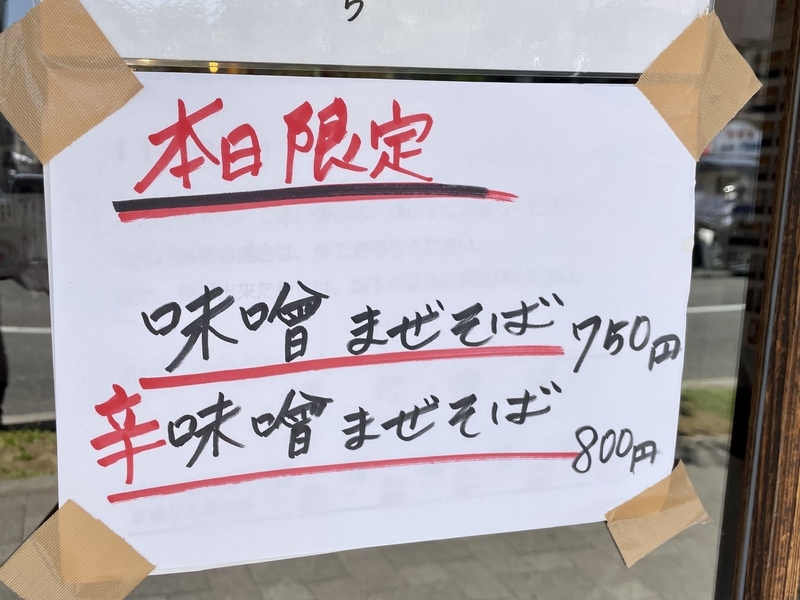 ら
本日限定
味噌まぜそば 750円
辛味噌まぜそば 800円